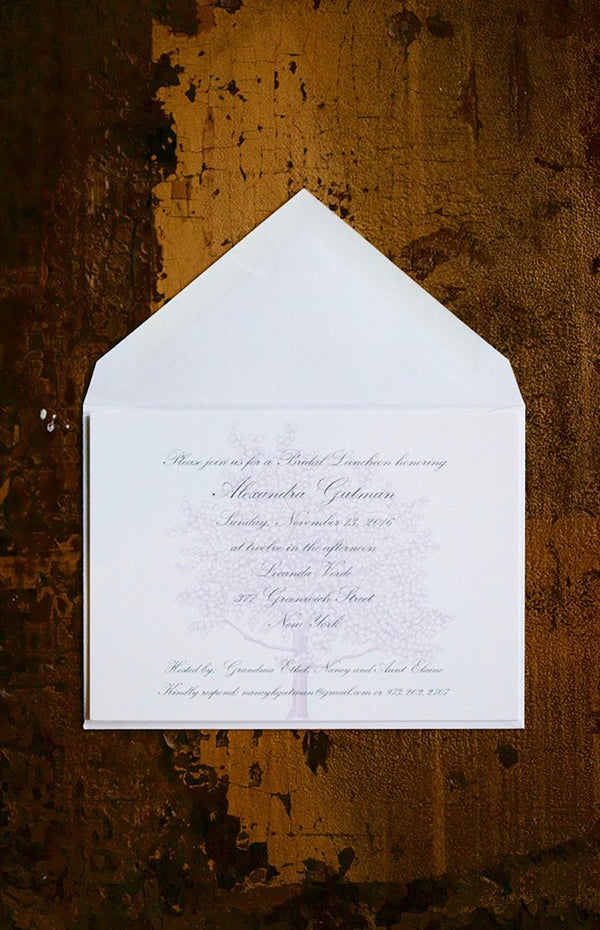 Please join us for a Bridal Luncheon honoring
Alexandra Gutman
Sunday, November 13, 2016
at twelve in the afternoon
Locanda Verde
377 Greenwich Street
New York
Hosted by: Grandma Ethel, Nancy and Aunt Elaine
Kindly respond: nancykgutman@gmail.com or 973.202.2707